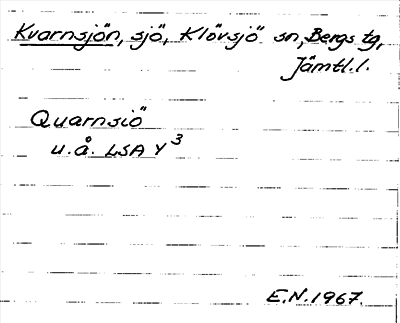 Kvarnsjön, sjö, Klövsjö sn, Bergs tg,
Jämtl.l.
Quarnsiö
u.å. LSA Y3
E.N.1967.